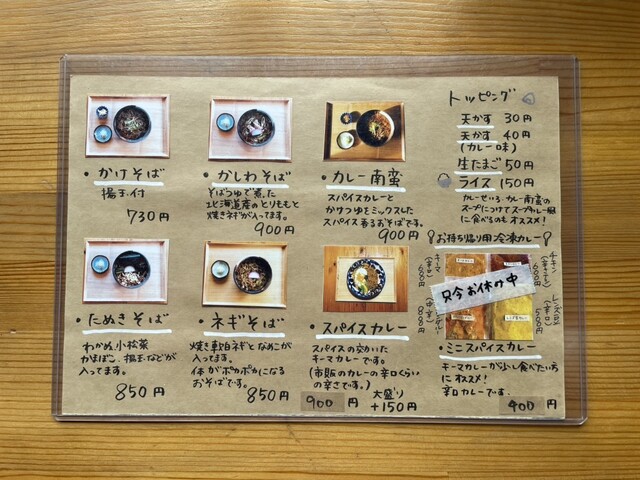 ・かけそば
揚玉付
730円
・かしわそば
そばつゆで煮た
北海道産のとりももと
焼きネギが入ってます。
900円
・カレー南蛮
スパイスカレーと
かけつゆをミックスした
スパイス香るおそばです。
900円
トッピング
天かす 30円
天かす 40円
(カレー味)
生たまご 50円
ライス 150円
カレーせいろ・カレー南蛮の
スープにつけてスープカレー風
に食べるのもオススメ!
・たぬきそば
わかめ、小松菜
かまぼこ、揚玉などが
入ってます。
850円
・ネギそば
焼き長ネギとなめこが
入ってます。
体がポカポカになる
おそばです。
850円
・スパイスカレー
スパイスの効いた
キーマカレーです。
(市販のカレーの辛口くらい
の辛さです。)
900円
大盛り
+150円
お持ち帰り用冷凍カレー
キーマ
(辛口)
600円
チキン
600円
只今お休み中
800円
・ミニスパイスカレー
キーマカレーが少し食べたい方
にオススメ!
辛口カレーです。
400円